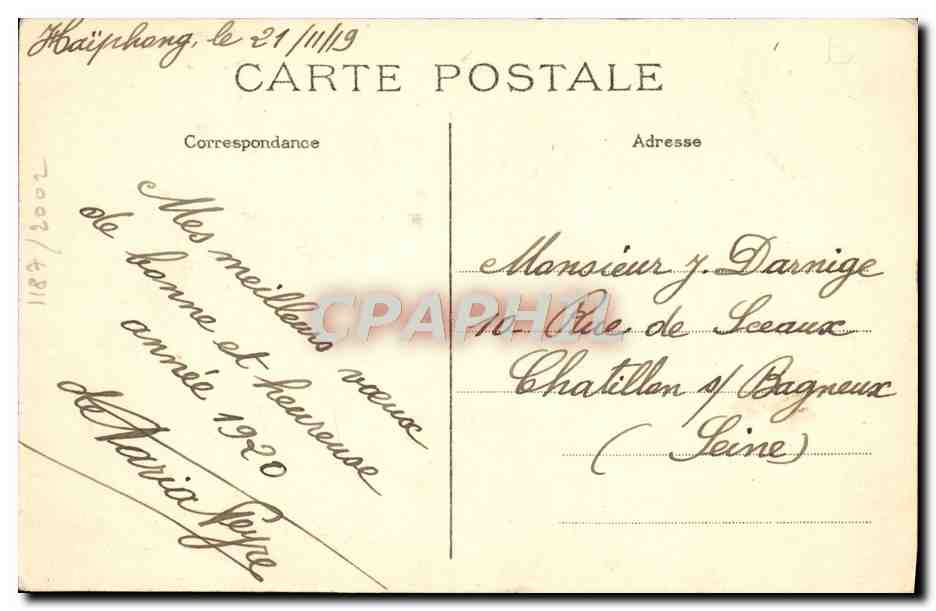 Haïphong, le 21/11/19
CARTE POSTALE
Correspondance
Mes meilleurs vœux
de bonne et heureuse
année 1920
de Maria Peyre
Adresse
Monsieur J. Darnige
10 - Rue de Sceaux
Chatillon s/ Bagneux
(Seine)
1187/2002
CPAPHIL